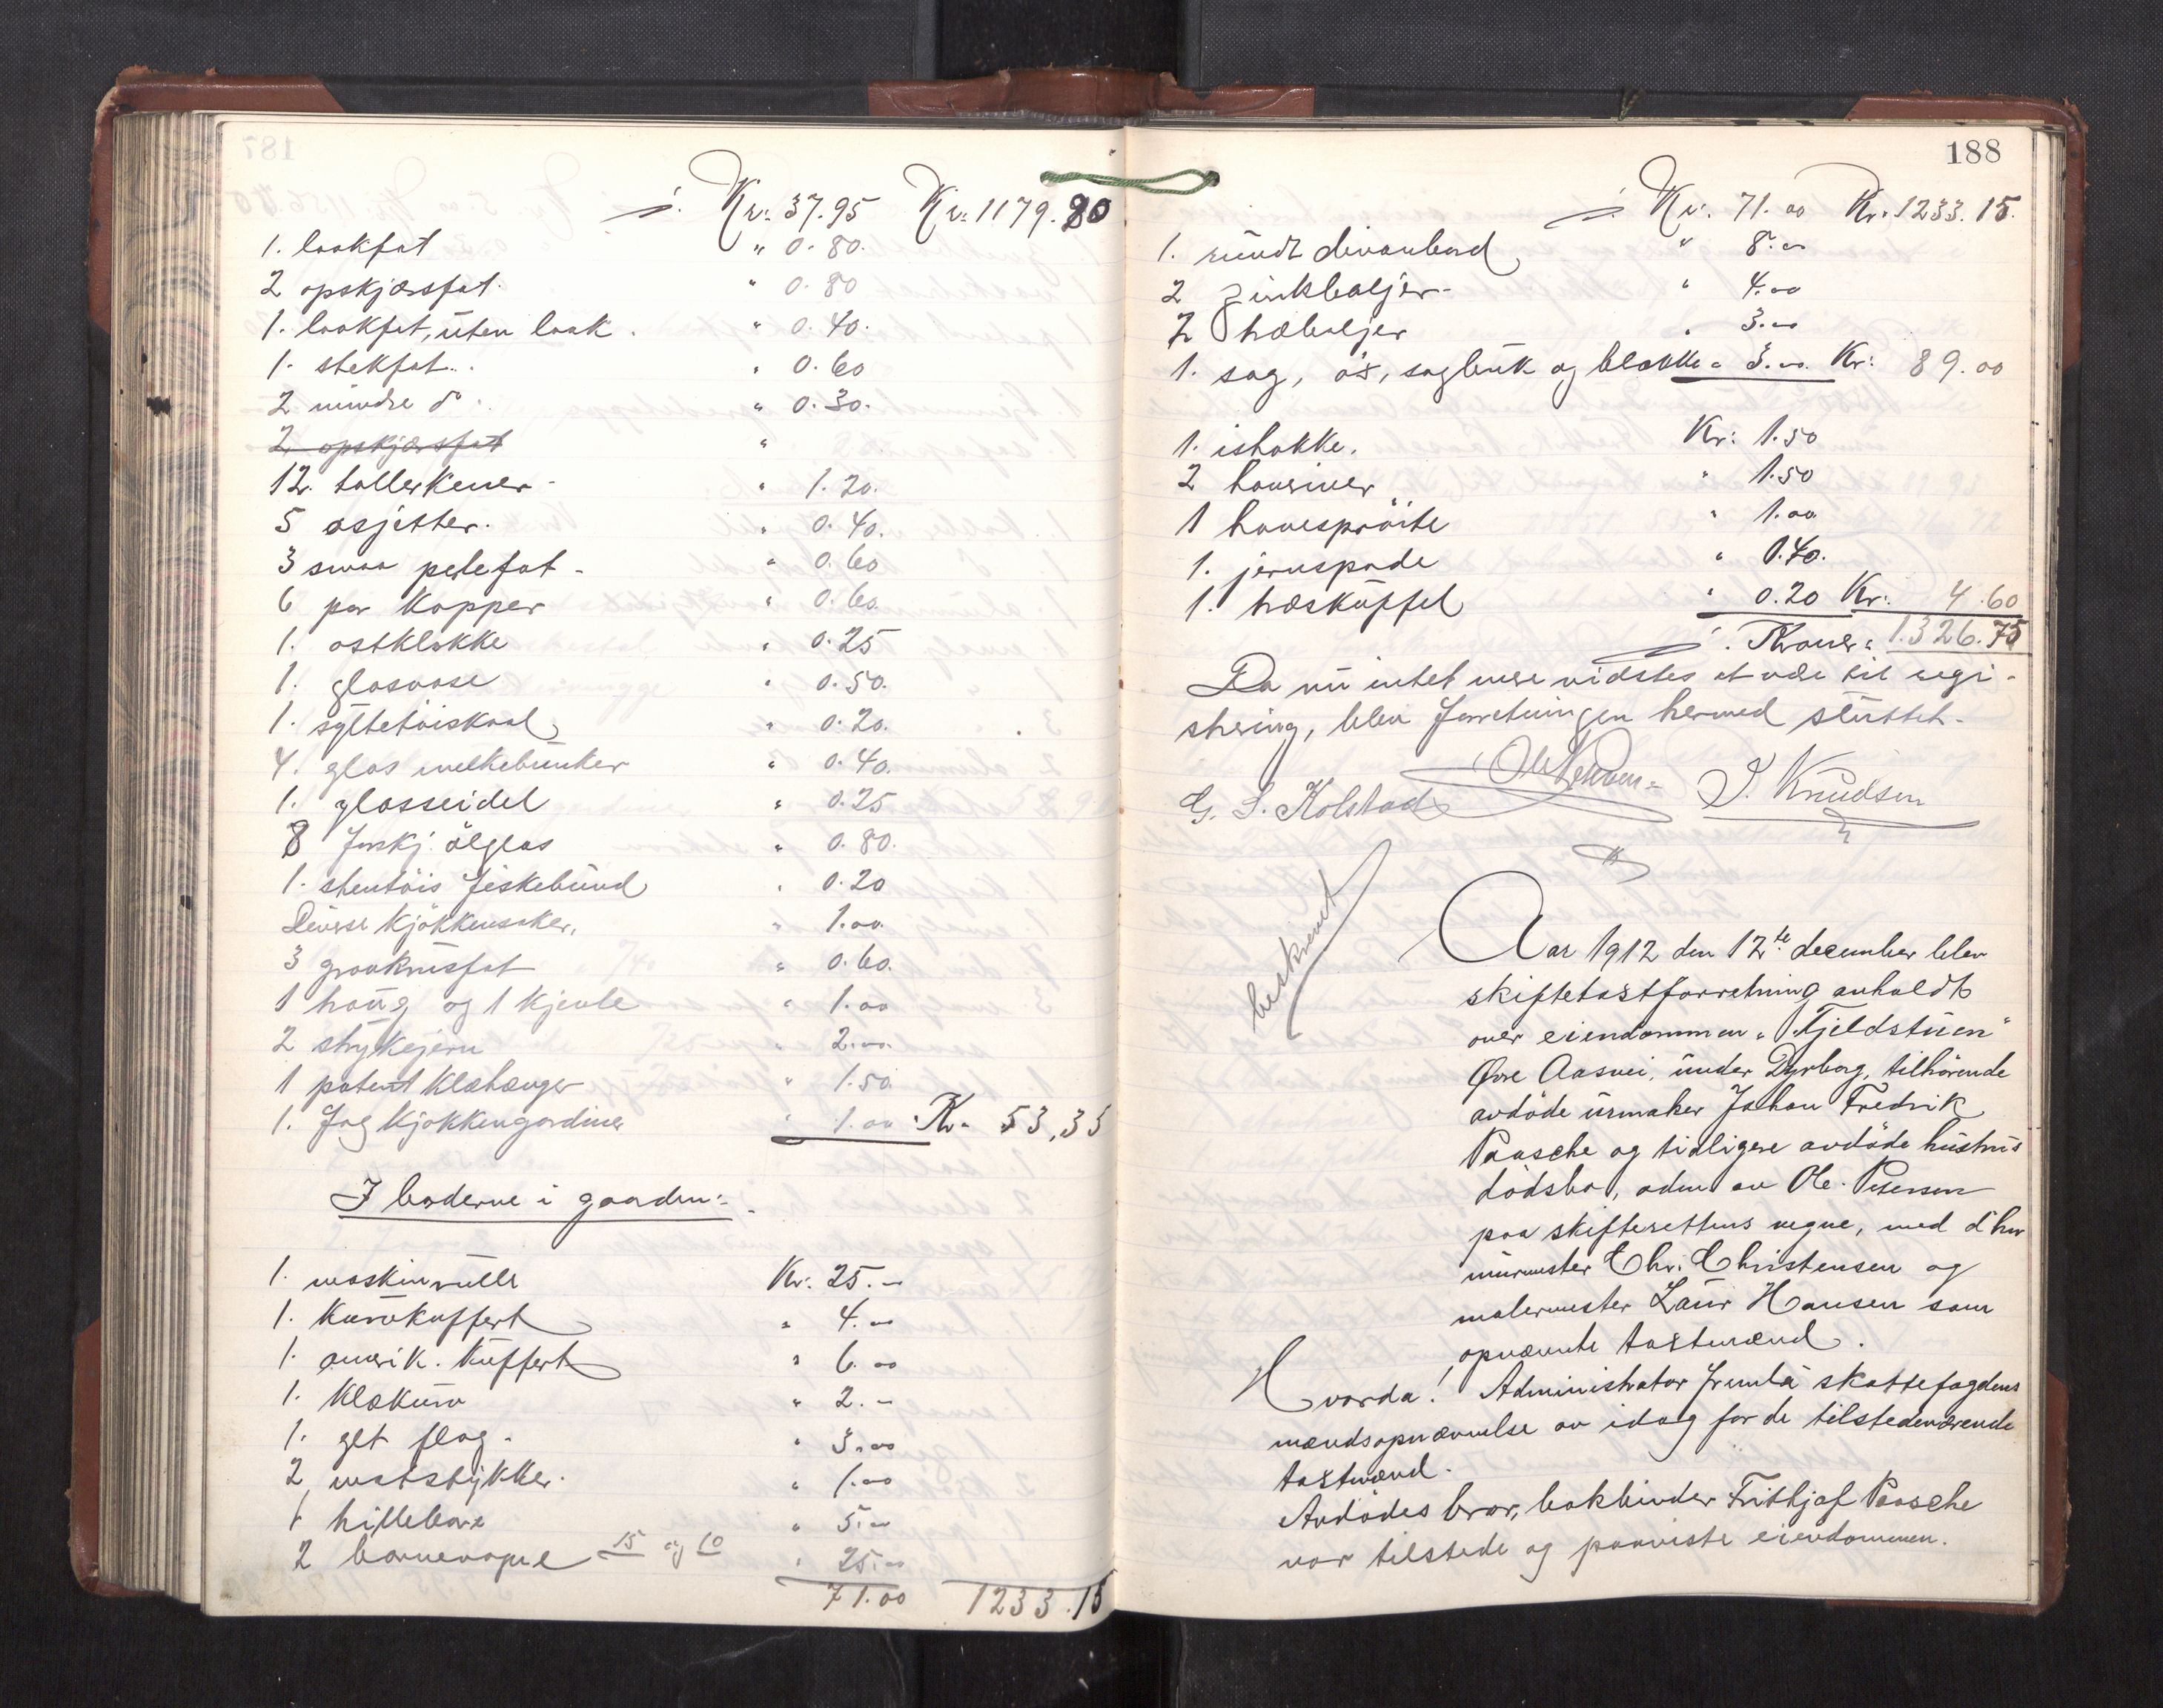 ÷ Kr: 37.95 Kr: 1179.80
1. laakfat " 0.80.
2 opskjærsfat. " 0.80
1. laakfat, uten laak. " 0.40.
1. stekfat.. " 0.60
2 mindre do. " 0.30.
2 opskjærsfat "
12. tallerkener - " 1.20.
5 asjetter. " 0.40.
3 smaa petefat - " 0.60
6 par kopper " 0.60.
1. ostklokke " 0.25
1. glasvase " 0.50.
1. syltetöiskaal " 0.20.
4. glas melkebunker " 0.40.
1. glasseidel " 0.25
8 forskj. ölglas " 0.80.
1. stentöis fiskebund " 0.20
Diverse kjökkensaker, " 1.00.
3 graakrusfat " 0.60.
1 traug og 1 kjevle " 1.00
2 strykejern " 2.00.
1 patent klæhænger " 1.50
1. fag kjøkkengardiner " 1.00 Kr. 53,35
I boderne i gaarden:-
1. maskinrulle Kr: 25.-
1. kurvkuffert " 4.-
1. amerik. kuffert " 6.00
1. klækurv " 2.-
1. glt flag. " 3.00
2 matstykker. " 1.00
1 trillebør " 5.-
2 barnevogne 15 og 10 " 25.00
71.00 1233.15
188
÷ Kr. 71.00 Kr. 1233.15.
1. rundt divanbord " 8.-
2 zinkbaljer - " 4.00
2 træbaljer " 3.-
1. sag, öx, sagbuk og blokke " 3.00. Kr: 89.00
1. ishakke. Kr: 1.50
2 haveriver " 1.50
1 havespröite " 1.00
1. jernspade " 0.40.
1. træskuffel " 0.20 Kr: 4.60
÷. Kroner: 1.326.75
Da nu intet mere vidstes at være til regi-
strering, blev forretningen hermed sluttet.
Ole Petersen J. Knudsen
G. S. Kolstad
beskrevet
Aar 1912 den 12te december blev
skiftetaxtforretning avholdt
over eiendommen "Fjeldstuen"
Øvre Aasvei, under Dyrborg, tilhörende
avdöde urmaker Johan Fredrik
Paasche og tidligere avdöde hustrus
dödsbo, adm av Ole Petersen
paa skifterettens vegne, med d'hrr
murmester Chr. Christensen og
malermester Laur Hansen som
opnævnte taxtmænd.
Hvorda! Administrator fremla skattefogdens
mændsopnævnelse av idag for de tilstedeværende
taxtmænd.
Avdödes bror, bokbinder Frithjof Paasche
var tilstede og paaviste eiendommen.